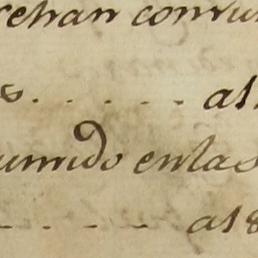 rehan convu
s. . . . . . a1
umido enlas
. . . . a18